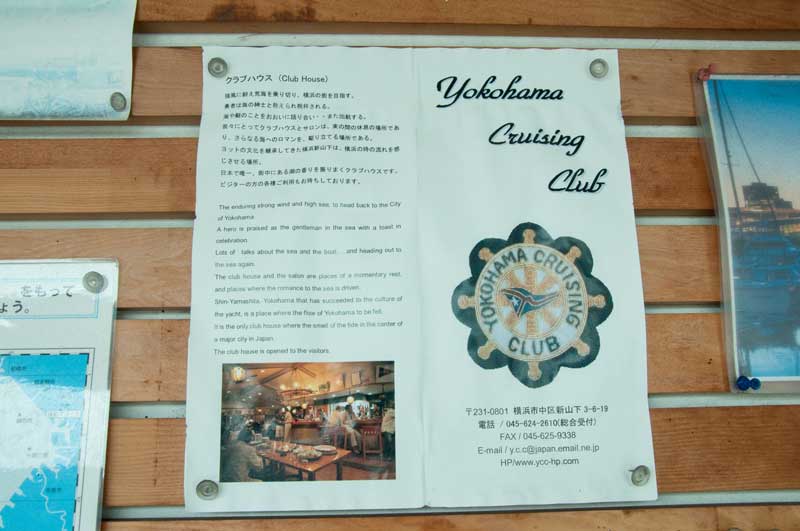 クラブハウス (Club House)
強風に耐え荒海を乗り切り、横浜の街を目指す。
勇者は海の紳士と称えられ祝杯される。
海や艇のことをおおいに語り合い・・また出航する。
我々にとってクラブハウスとサロンは、束の間の休息の場所であ
り、さらなる海へのロマンを、駆り立てる場所である。
ヨットの文化を継承してきた横浜新山下は、横浜の時の流れを感
じさせる場所。
日本で唯一、街中にある潮の香りを振りまくクラブハウスです。
ビジターの方の各種ご利用もお待ちしております。
The enduring strong wind and high sea, to head back to the City
of Yokohama.
A hero is praised as the gentleman in the sea with a toast in
celebration.
Lots of talks about the sea and the boat... and heading out to
the sea again.
The club house and the salon are places of a momentary rest,
and places where the romance to the sea is driven.
Shin-Yamashita,-Yokohama that has succeeded to the culture of
the yacht, is a place where the flow of Yokohama to be felt.
It is the only club house where the smell of the tide in the center of
a major city in Japan.
The club house is opened to the visitors.
Yokohama
Cruising
Club
YOKOHAMA CRUISING
CLUB
〒231-0801 横浜市中区新山下 3-6-19
電話 / 045-624-2610(総合受付)
FAX / 045-625-9338
E-mail / y.c.c@japan.email.ne.jp
HP/www.ycc-hp.com
をもって
ょう。